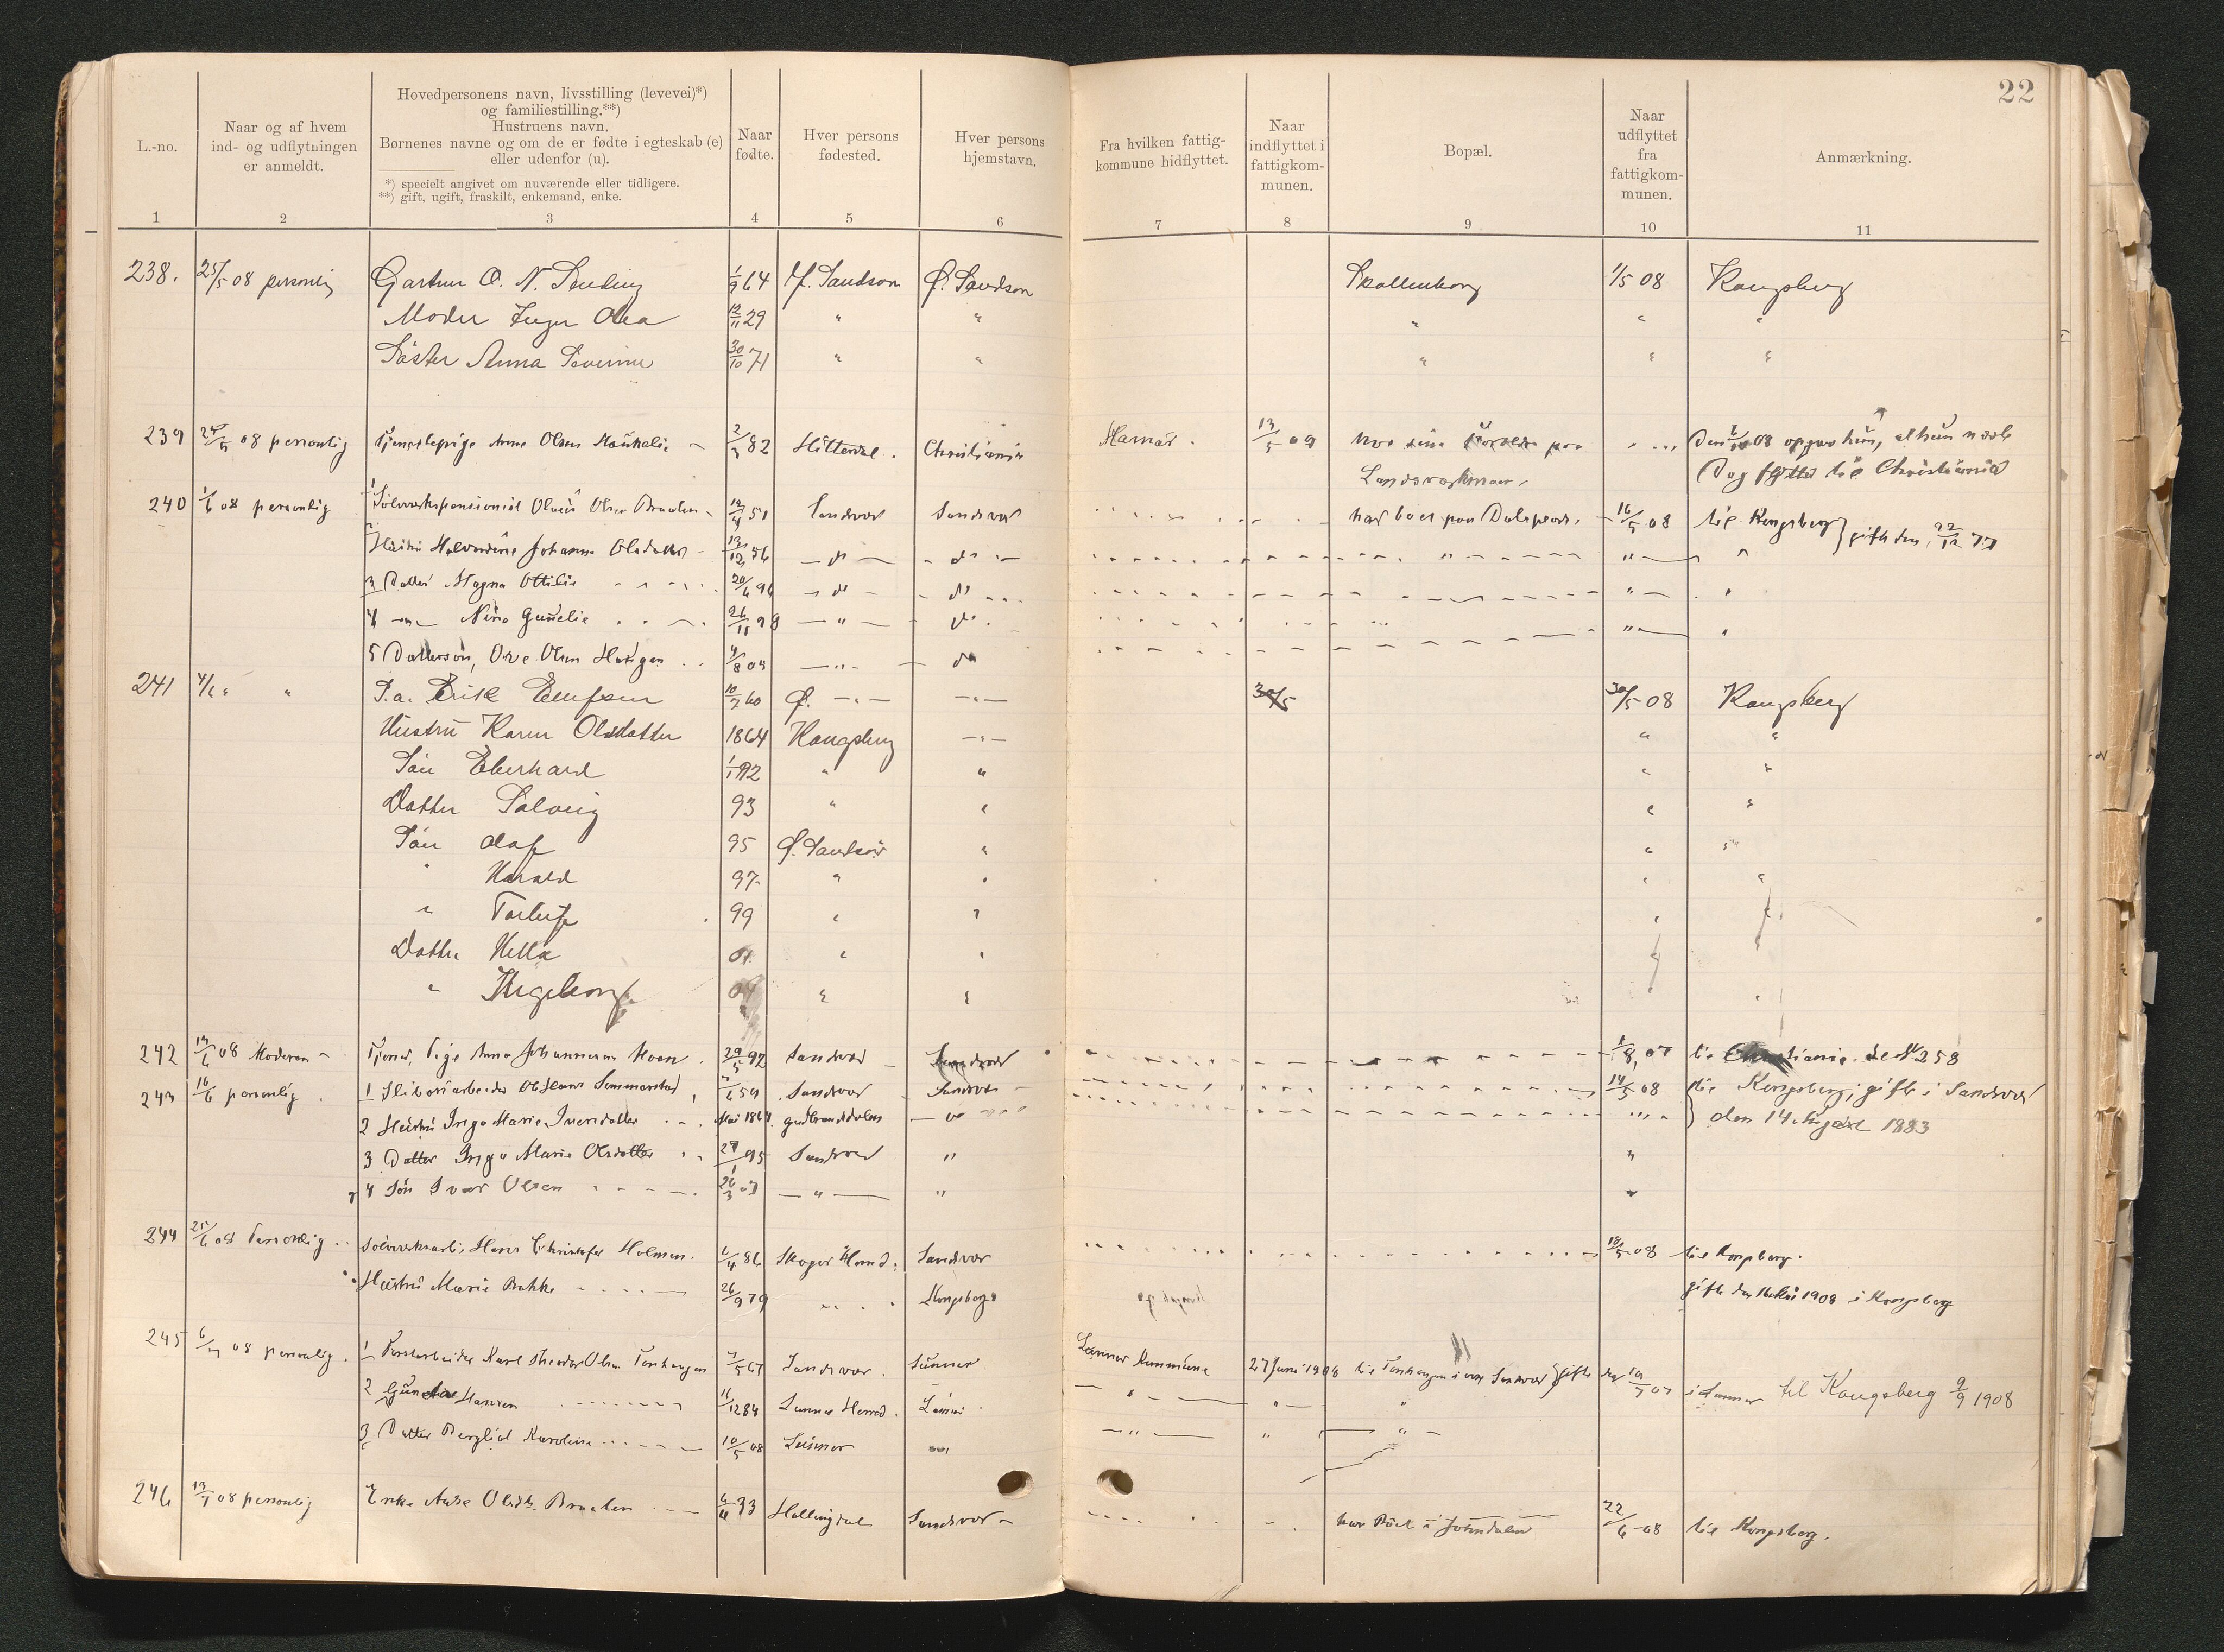 22
L.-no.
Naar og af hvem
ind- og udflytningen
er anmeldt.
Hovedpersonens navn, livsstilling (levevei)*)
og familiestilling.**)
Hustruens navn.
Børnenes navne og om de er fødte i egteskab (e)
eller udenfor (u).
*) specielt angivet om nuværende eller tidligere.
**) gift, ugift, fraskilt, enkemand, enke.
Naar
fødte.
Hver persons
fødested.
Hver persons
hjemstavn.
Fra hvilken fattig-
kommune hidflyttet.
Naar
indflyttet i
fattigkom-
munen.
Bopæl.
Naar
udflyttet
fra
fattigkom-
munen.
Anmærkning.
1 2 3 4 5 6 7 8 9 10 11
238. 25/5 08 personlig O. N. 1/9 64 Y. Sandsvær Ø. Sandsvær Skollenborg 1/5 08 Kongsberg
Moder Inger Olea 12/11 29 " " " " "
Søster Anna Severine 30/10 71 " " " " "
239 25/5 08 personlig Tjenestepige Anne Olsen 2/3 82 Hitterdal. Christiania Hamar. 13/5 09 hos sine Forældre paa Den 08 opgav hun, at hun næste
Dag flytter til Christiania
240 1/6 08 personlig 1 Sølvverkspensionist Olaus Olsen Braaten 12/4 51 Sandsvær Sandsvær har boet paa 16/5 08 til Kongsberg } gift den 22/12 77
2 Hustru Johanne Olsdatter 13/12 56 do do " "
3 Datter Magna Ottilie 20/6 96 do do " "
4 Nina Gunelie 26/11 98 " do. " "
5 Dattersøn, Olsen Haugen 4/8 05 " do
241 4/6 " " P.a. Erik Enufsen 10/7 60 Ø. " " 30/5 30/5 08 Kongsberg
Hustru Karen Olsdatter 1864 Kongsberg " " "
Søn Eberhard 1/1 92 " " " "
Datter Solveig 93 " " " "
Søn Olaf 95 Ø. Sandsvær " " "
" Harald 97 " " " "
" Torleif 99 " " " "
Datter Hella 01 " " " "
" Ingeborg 04 " " " "
242 14/6 08 Moderen Tjener, Pige Anna Johannesen Moen 29/5 92 Sandsvær Sandsvær 1/8, 07 til Christiania. se № 258
243 16/6 personlig. 1 Sliberiarbeider Ole Hans Sommerstad 59 Sandsvær Sandsvær 14/5 08 til Kongsberg; gift i Sandsvær
2 Hustru Inga Marie Iversdatter Mai 1864. Gudbrandsdalen do " den 14 August 1883
3 Datter Inga Marie Olsdatter 95 Sandsvær " "
4 Søn Ivar Olsen 26/3 07 " " "
244 25/6 08 Personlig Sølvverksarb. Hans Christofer Holmen. 6/4 86 Skoger Herred. Sandsvær 18/5 08 til Kongsberg.
Hustru Marie Bakke 26/9 79 Kongsberg gift den 16 Mai 1908 i Kongsberg
245 6/7 08 personlig. 1 Karl Theodor Olsen 7/5 67 Sandsvær. Lunner Lunner Kommune 27 Juni 1908 gift den 07 i Lunner til Kongsberg 9/9 1908
2 Hansen 11/12 84 Lunner Herred. Lunner " " "
3 Datter Bergliot Karoline 10/5 08 Lunner " " " "
246 13/7 08 personlig Enke Olsdt. Braaten 6/4 33 Hallingdal Sandsvær har Boet i Jondalen 22/6 08 til Kongsberg.